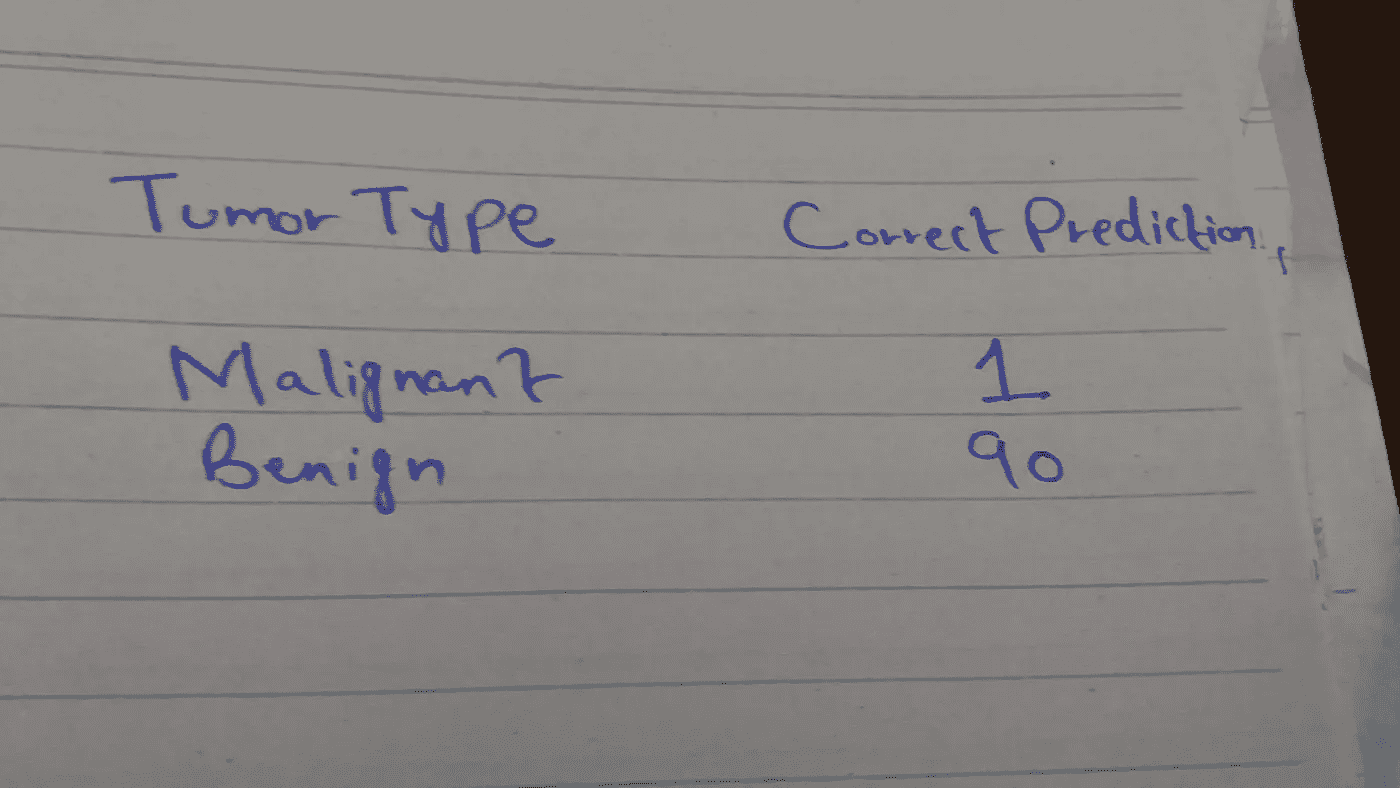 Tumor Type Correct Prediction
Malignant 1
Benign 90